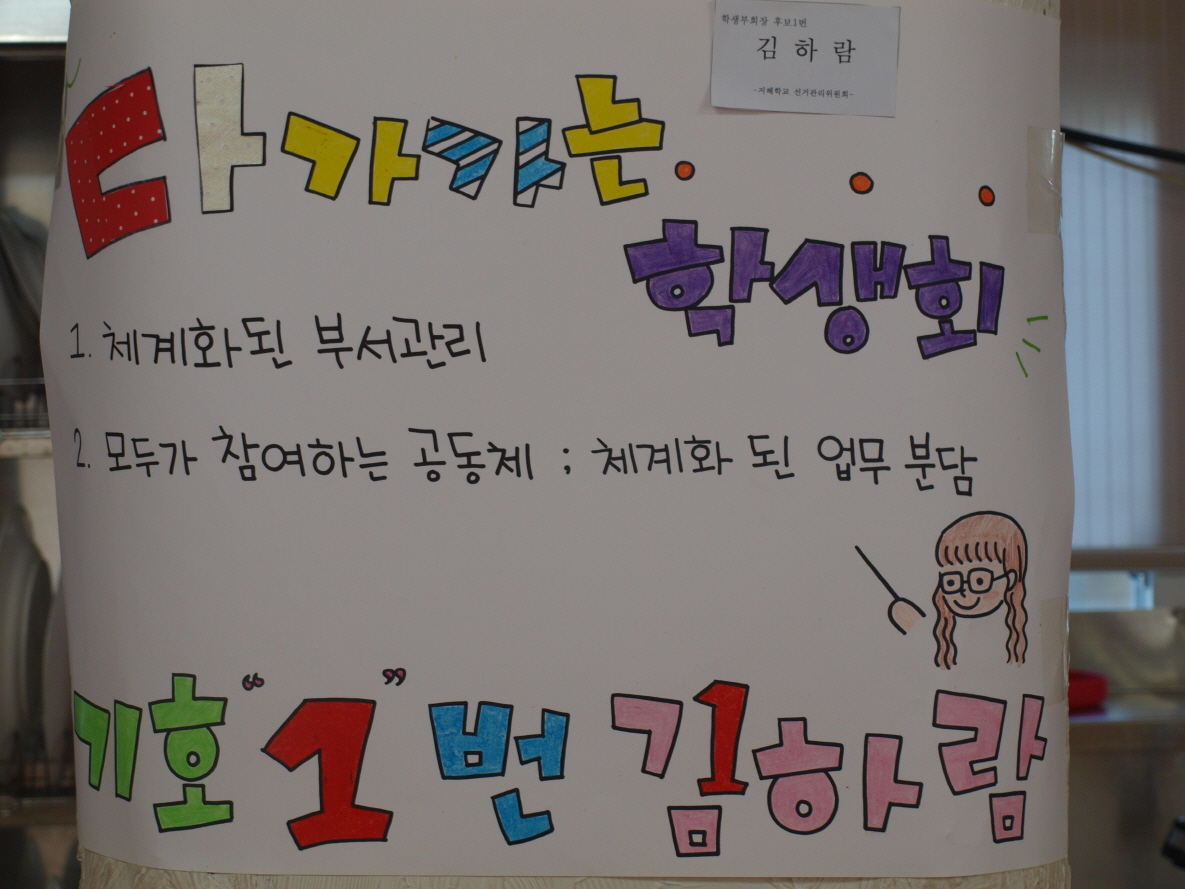 학생부회장 후보1번
김 하 람
-지혜학교 선거관리위원회-
다가가는...
학생회
1. 체계화된 부서관리
2. 모두가 참여하는 공동체 ; 체계화 된 업무 분담
기호 "1"번 김하람